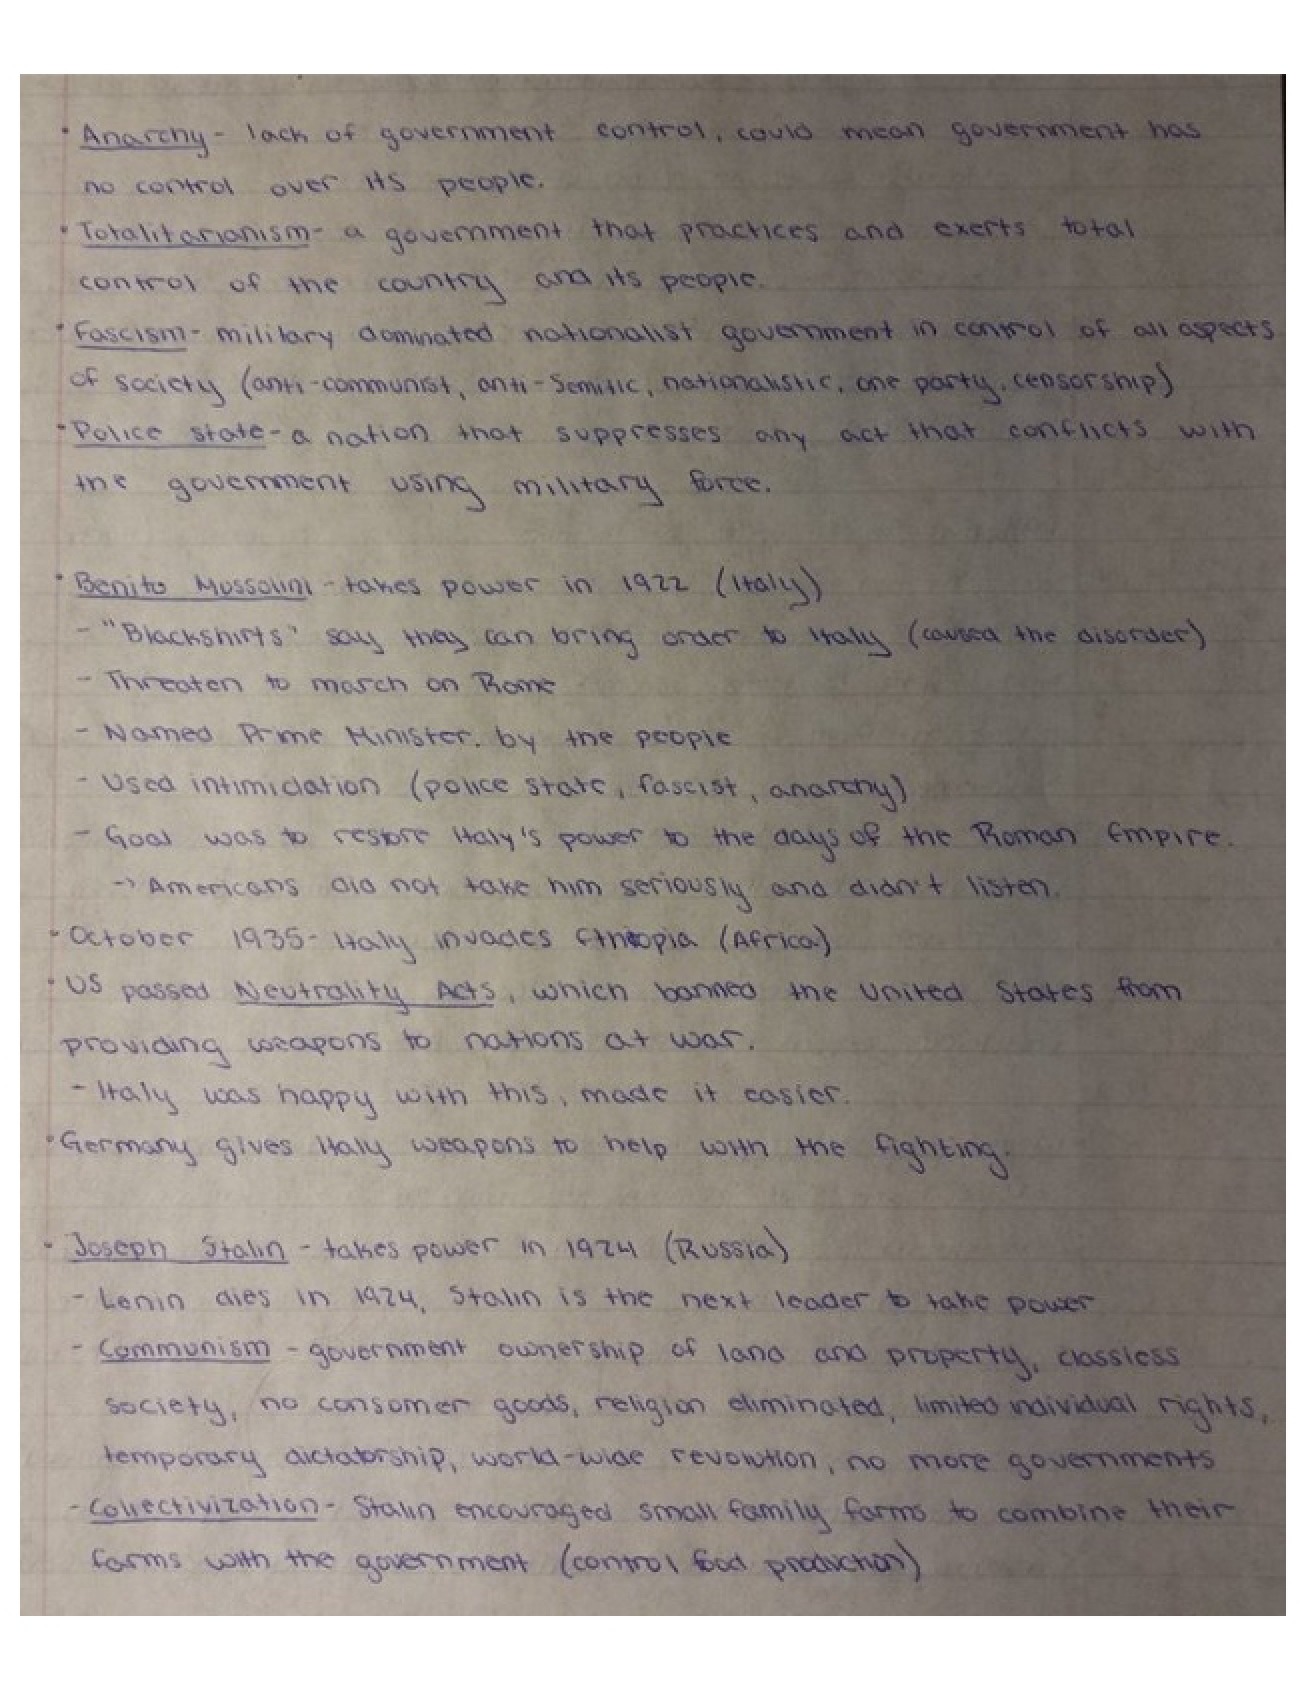 • Anarchy - lack of government control, could mean government has
no control over its people.
• Totalitarianism - a government that practices and exerts total
control of the country and its people.
• Fascism - military dominated nationalist government in control of all aspects
of society (anti-communist, anti-Semitic, nationalistic, one party, censorship)
• Police state - a nation that suppresses any act that conflicts with
the government using military force.
• Benito Mussolini - takes power in 1922 (Italy)
- "Blackshirts" say they can bring order to Italy (caused the disorder)
- Threaten to march on Rome
- Named Prime Minister. by the people
- Used intimidation (police state, fascist, anarchy)
- Goal was to restore Italy's power to the days of the Roman Empire.
-> Americans did not take him seriously and didn't listen.
• October 1935 - Italy invades Ethiopia (Africa)
• US passed Neutrality Acts, which banned the United States from
providing weapons to nations at war.
- Italy was happy with this, made it easier.
• Germany gives Italy weapons to help with the fighting.
• Joseph Stalin - takes power in 1924 (Russia)
- Lenin dies in 1924, Stalin is the next leader to take power
- Communism - government ownership of land and property, classless
society, no consumer goods, religion eliminated, limited individual rights,
temporary dictatorship, world-wide revolution, no more governments
- Collectivization - Stalin encouraged small family farms to combine their
farms with the government (control food production)